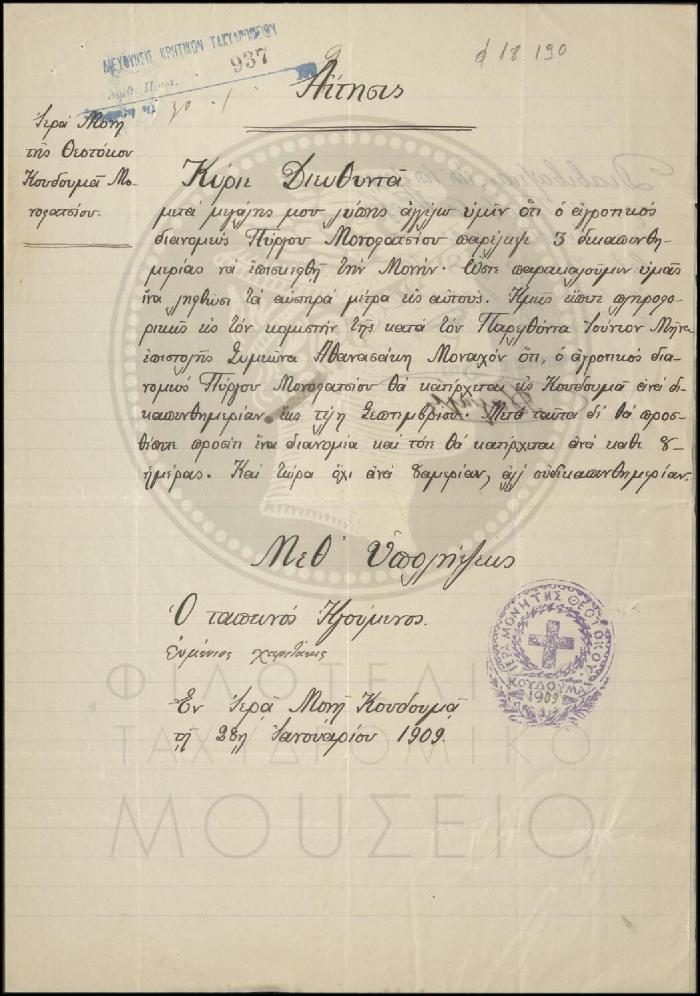 ΔΙΕΥΘΥΝΣΙΣ ΚΡΗΤΙΚΩΝ ΤΑΧΥΔΡΟΜΕΙΩΝ
937
30 - 1
d 18 190
Αἴτησις
Ἱερά Μονή
τῆς Θεοτόκου
Κουδουμᾶ Μο-
νοφατσίου.
Κύριε Διευθυντά
μετά μεγάλης μου λύπης ἀγγέλω ὑμῖν ὅτι ὁ ἀγροτικός
διανομεύς Πύργου Μονοφατσίου παρέλειψε 3 δεκαπενθη-
μερίας νά ἐπισκεφθῇ τήν Μονήν. Ὥστε παρακαλοῦμεν ὑμᾶς
ἵνα ληφθῶσι τά αὐστηρά μέτρα εἰς αὐτούς. Ἡμεῖς εἴπετε πληροφο-
ρικῶς εἰς τόν κομιστήν τῆς κατά τόν Παρελθόντα Ἰούνιον Μῆνα
ἐπιστολῆς Συμεῶνα Ἀθανασάκη Μοναχόν ὅτι, ὁ ἀγροτικός δια-
νομεύς Πύργου Μονοφατσίου θά κατέρχεται εἰς Κουδουμᾶ ἀνά δε-
καπενθημερίαν ἕως τέλη Σεπτεμβρίου. Μετά ταῦτα δέ θά προσ-
θέσητε προσέτι ἕνα διανομέα καί τότε θά κατέρχεται ἀνά καθε 8-
ἡμέρας. Καί τώρα ὄχι ἀνά 8αμερίαν, ἀλλ' οὐδεκαπενθημερίαν.
Μεθ' Ὑπολήψεως
Ὁ ταπεινός Ἡγούμενος.
Εὐμένιος
Ἐν Ἱερᾷ Μονῇ Κουδουμᾶ
τῇ 28ῃ Ἰανουαρίου 1909.
ΙΕΡΑ ΜΟΝΗ ΤΗΣ ΘΕΟΤΟΚΟΥ
ΚΟΥΔΟΥΜΑ
1909
ΦΙΛΟΤΕΛΙΚΟ
ΤΑΧΥΔΡΟΜΙΚΟ
ΜΟΥΣΕΙΟ